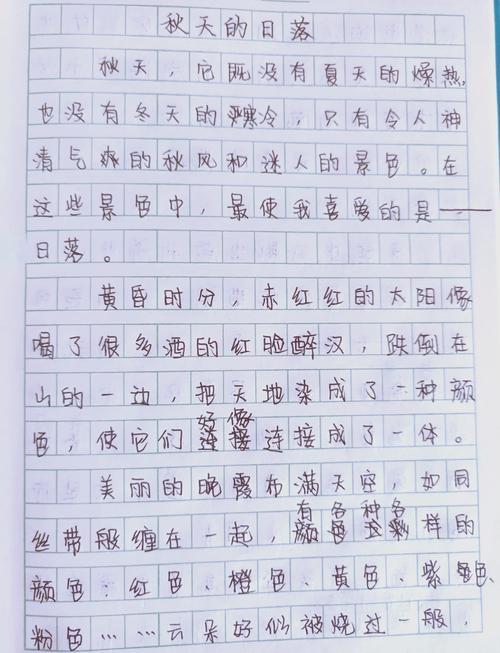 秋天的日落
秋天，它既没有夏天的燥热，
也没有冬天的严寒冷，只有令人神
清气爽的秋风和迷人的景色。在
这些景色中，最使我喜爱的是——
日落。
黄昏时分，赤红红的太阳像
喝了很多酒的红脸醉汉，跌倒在
山的一边，把天地染成了一种颜
好像
色，使它们连接成了一体。
美丽的晚霞布满天空，如同
有各种各
丝带般缠在一起，样的
颜色：红色、橙色、黄色、紫色、
粉色……云朵好似被烧过一般，